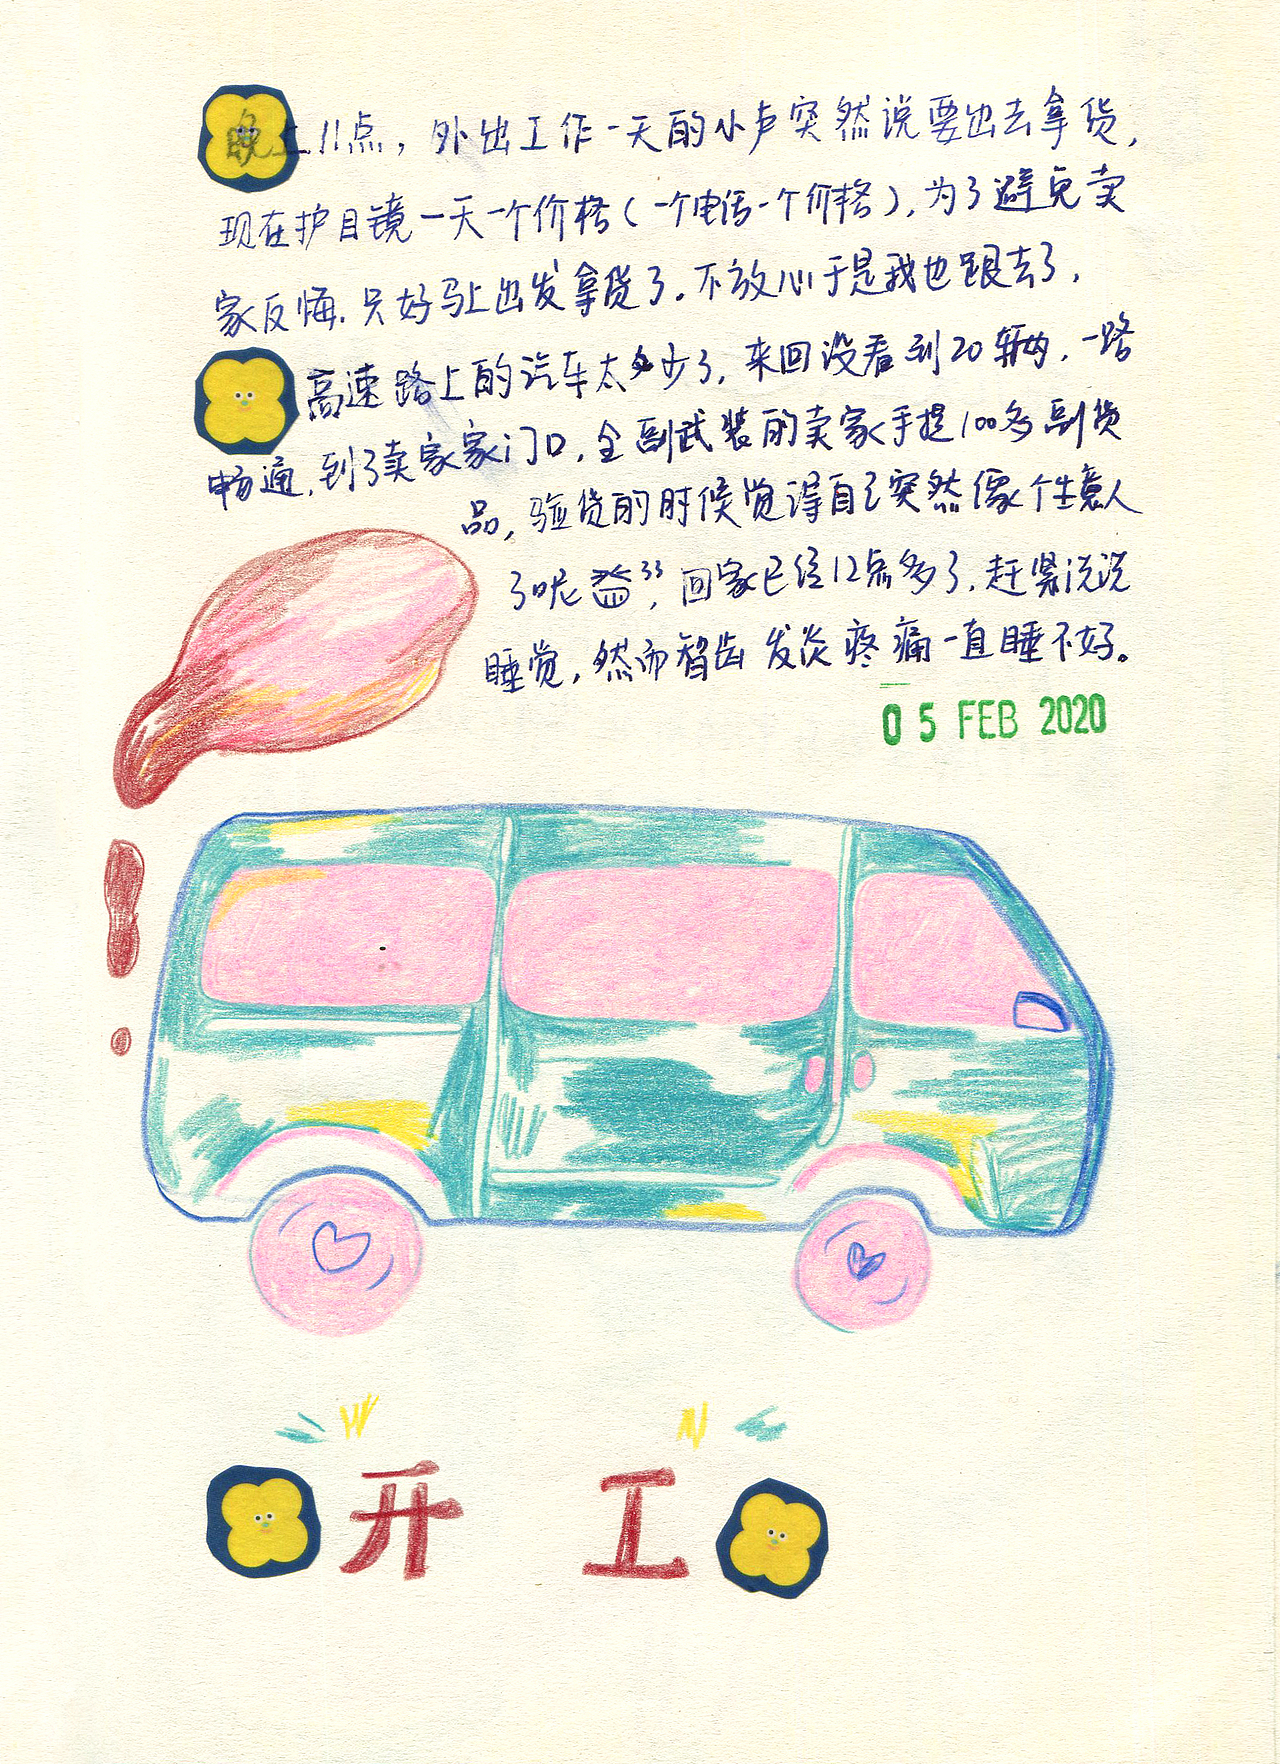 晚上11点，外出工作一天的小卢突然说要出去拿货，
现在护目镜一天一个价格（一个电话一个价格），为了避免卖
家反悔.只好马上出发拿货了。不放心于是我也跟去了，
高速路上的汽车太少了，来回没看到20辆，一路
畅通，到了卖家家门口，全副武装的卖家手提100多副货
品，验货的时候觉得自己突然像个生意人
了呢，回家已经12点多了，赶紧洗洗
睡觉，然而智齿发炎疼痛一直睡不好。
05 FEB 2020
开工